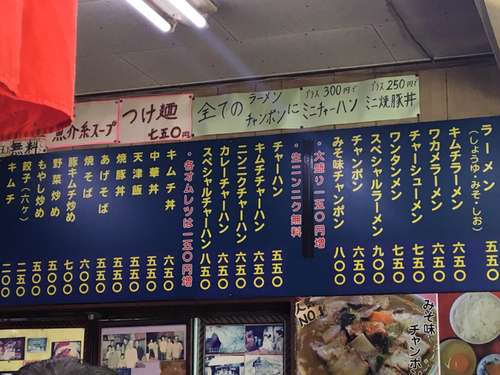 魚介系スープ
つけ麺
七五〇円
全てのラーメン
チャンポンに
プラス300円で
ミニチャーハン
プラス250円で
ミニ焼豚丼
無料
ラーメン
(しょうゆ・みそ・しお)
五五〇
キムチラーメン 六五〇
ワカメラーメン 六五〇
チャーシューメン 七五〇
ワンタンメン 七五〇
スペシャルラーメン 九〇〇
チャンポン 七五〇
みそ味チャンポン 八〇〇
・大盛り一五〇円増
・生ニンニク無料
チャーハン 五五〇
キムチチャーハン 六五〇
ニンニクチャーハン 六五〇
カレーチャーハン 六五〇
スペシャルチャーハン 八五〇
・各オムレツは一五〇円増
キムチ丼 五五〇
中華丼 六五〇
天津飯 六五〇
焼豚丼 五五〇
あげそば 六五〇
焼そば 六五〇
豚キムチ炒め
野菜炒め 五五〇
もやし炒め 五〇〇
餃子(六ケ)
キムチ
NO.1
みそ味
チャンポン